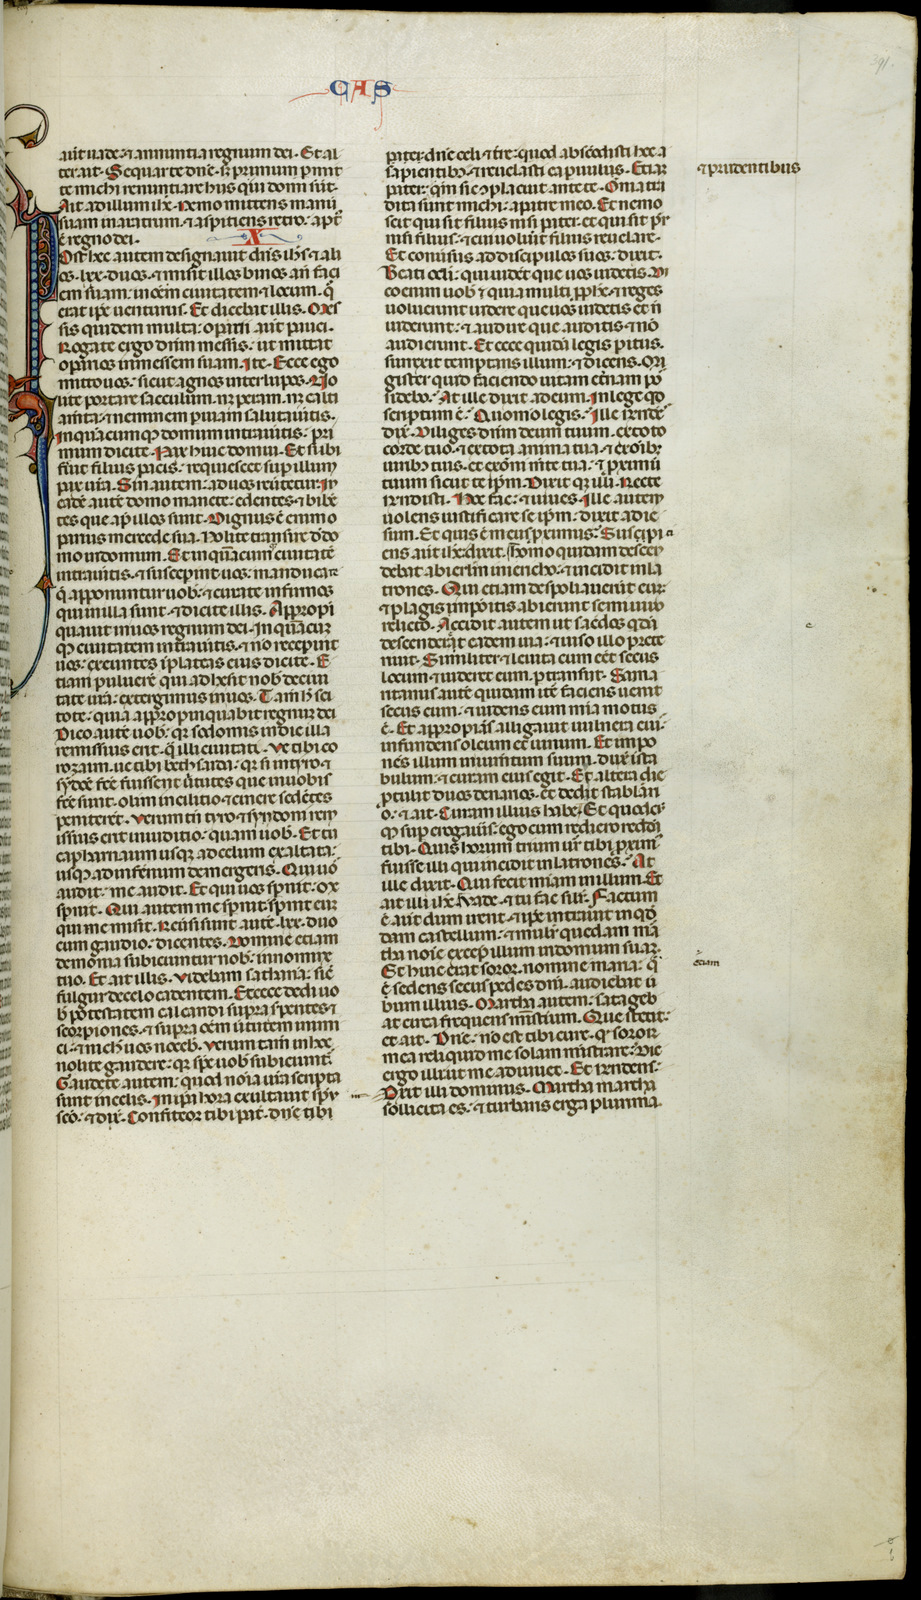 391.
CAS
aut̄ uade: ⁊ annuntia regnum dei. Et al
ter ait. Sequar te dn̄e. s; primum ꝑmit
te michi renuntiare hus qui domi sūt.
Ait ad illum ih̄c. Nemo mittens manū
suam in aratrum. ⁊ aspitiens retro: apt
ē regno dei.
X
Post hec autem designauit dn̄s ih̄s ⁊ ali
os. lxx. duos. ⁊ misit illos binos an̄ faci
em suam: in oēm ciuitatem ⁊ locum. q̄
erat ip̄e uenturus. Et dicebat illis. Mes
sis quidem multa: oꝑarii aut̄ pauci.
Rogate ergo dn̄m messis: ut mittat
oꝑarios in messem suam. Ite. Ecce ego
mitto uos: sicut agnos inter lupos. No
lite portare sacculum. nr̄ peram. nr̄ calti
amta: ⁊ neminem ꝑ uiam salutaūitis.
In quacumq; domum intraūitis: pri
mum dicite. Pax huic domui. Et si ibi
fūit filius pacis: requiescet suꝑ illum
pax ur̄a. Sin autem: ad uos reūtetur. In
eadē autē domo manete: edentes ⁊ bibē
tes que ap̄ illos sunt. Dignus ē enim o
ꝑarius mercede sua. Nolite transire d̄ do
mo in domum. Et in quācumq; ciuitatē
intraūitis. ⁊ susceꝑint uos: manducate
q̄ apponuntur uob̄: ⁊ curate infirmos
qui in illa sunt. ⁊ dicite illis. Appropi
quauit in uos regnum dei. In quācūq
q; ciuitatem intraūitis. ⁊ nō receꝑint
uos: exeuntes ī plateas eius dicite. E
tiam puluerē qui adhesit nob̄ de ciui
tate ur̄a: extergimus in uos. Tam̄ h̄ sci
tote: quia appropinquabit regnum dei
Dico autē uob̄: q̄r sodomis in die illa
remissius erit. q̄ illi ciuitati. Ve tibi co
rozaim. ue tibi bethsaida: q̄r si in tyro ⁊
sydōe fc̄e fuissent ūtutes que in uobis
fc̄e sunt. olim in cilitio ⁊ cinere sedētes
peniterēt. Verum tn̄ tyro ⁊ sydoni rem
issius erit in iuditio: quam uob̄. Et tu
capharnaum usq; ad celum exaltata:
usq; ad infernum demergeris. Qui uos
audit: me audit. Et qui uos sꝑnit: me
sꝑnit. Qui autem me sꝑnit sꝑnit eum
qui me misit. Reūsi sunt autē. lxx. duo
cum gaudio: dicentes. Domine etiam
demonia subiciuntur nob̄: in nomine
tuo. Et ait illis. Videbam sathanā: sic̄
fulgur de celo cadentem. Et ecce dedi uo
b̄ potestatem calcandi supra sꝑentes ⁊
scorpiones. ⁊ supra oēm ūtutem inimi
ci: ⁊ nich̄ uos noceb̄. Verum tam̄ in hoc
nolite gaudere: q̄r sp̄c uob̄ subiciunt̄.
Gaudete autem: quod noīa ur̄a scripta
sunt in celis. In ip̄a hora exultauit sp̄u
sc̄o: ⁊ dix̄. Confiteor tibi pat̄. dn̄e tibi
pater dn̄e celi ⁊ tr̄e: quod abscōdisti hec a
sapientibꝫ: ⁊ reuelasti ea ꝑuulis. Etiam
⁊ prudentibus
pater: qm̄ sic ꝯplacuit ante te. Omīa tra
dita sunt michi: a patre meo. Et nemo
scit qui sit filius nisi pater. et qui sit pr̄
nisi filius: ⁊ cui uolūit filius reuelare.
Et conūsus ad discipulos suos: dixit.
Beati oc̄li: qui uidēt que uos uidetis. Di
co enim uob̄ ⁊ quia multi ꝓph̄e. ⁊ reges
uoluerunt uidere que uos uidetis et n̄
uiderunt: ⁊ audire que auditis ⁊ nō
audierunt. Et ecce quidā legis ꝑitus.
surrexit temptans illum: ⁊ dicens. Ma
gister quid faciendo uitam et̄nam po
sidebo: At ille dixit ad eum. In lege qd̄
scriptum ē: Quomō legis: Ille r̄ndēs
dix̄. Diliges dn̄m deum tuum. ex toto
corde tuo. ⁊ ex tota anima tua. ⁊ ex oībꝫ
uiribꝫ tuis. et ex oī m̄te tua: ⁊ proximū
tuum sicut te ip̄m. Dixit q; illi. Recte
r̄ndisti. Hoc fac: ⁊ uiues. Ille autem
uolens iustificare se ip̄m: dixit ad ie
sum. Et quis ē meus proximus: Suscipi
ens aut̄ ih̄c: dixit. Homo quidam descen
debat ab ierl̄m in iericho: ⁊ incidit in la
trones. Qui etiam despoliauerūt eum:
⁊ plagis impoītis abierunt semiuiuo
relicto. Accidit autem ut sac̄dos q̄dā
descenderat eadem uia: ⁊ uiso illo prete
riuit. Similiter ⁊ leuita cum eēt secus
locum ⁊ uideret eum. ꝑtransiit. Sama
ritanus autē quidam it̄ faciens uenit
secus eum: ⁊ uidens eum mīa motus
ē. Et appropiās alligauit uulnera eiꝰ:
infundens oleum ⁊ uinum. Et impo
nēs illum in iumtum suum. duxit ī sta
bulum: ⁊ curam eius egit. Et altera die
ꝓtulit duos denarios. ⁊ dedit stablari
o: ⁊ ait. Curam illius habe. Et quodcū
q; suꝑerogaūis: ego cum rediero reddā
tibi. Quis horum trium ur̄ tibi proxim̄
fuisse illi qui incidit in latrones: At
ille dixit. Qui fecit m̄iam in illum. Et
ait illi ih̄c. Vade. ⁊ tu fac sīlr̄. Factum
ē aut̄ dum irent. ⁊ ip̄e intrauit in qd̄
dam castellum: ⁊ mulier quedam ma
tha noīe excepit illum in domum suam.
Et huic erat soror nomine maria. q̄
etiam
ē sedens secus pedes dn̄i. audiebat ū
bum illius. Martha autem: satageb
at circa frequens ministerium. Que stetit:
et ait. Dn̄e: nō est tibi cure. q̄ soror
mea reliquid me solam ministrare: Dic
ergo illi ut me adiuuet. Et r̄ndens:
Dixit illi dominus. Martha martha
sollicita es: ⁊ turbaris erga plurima.